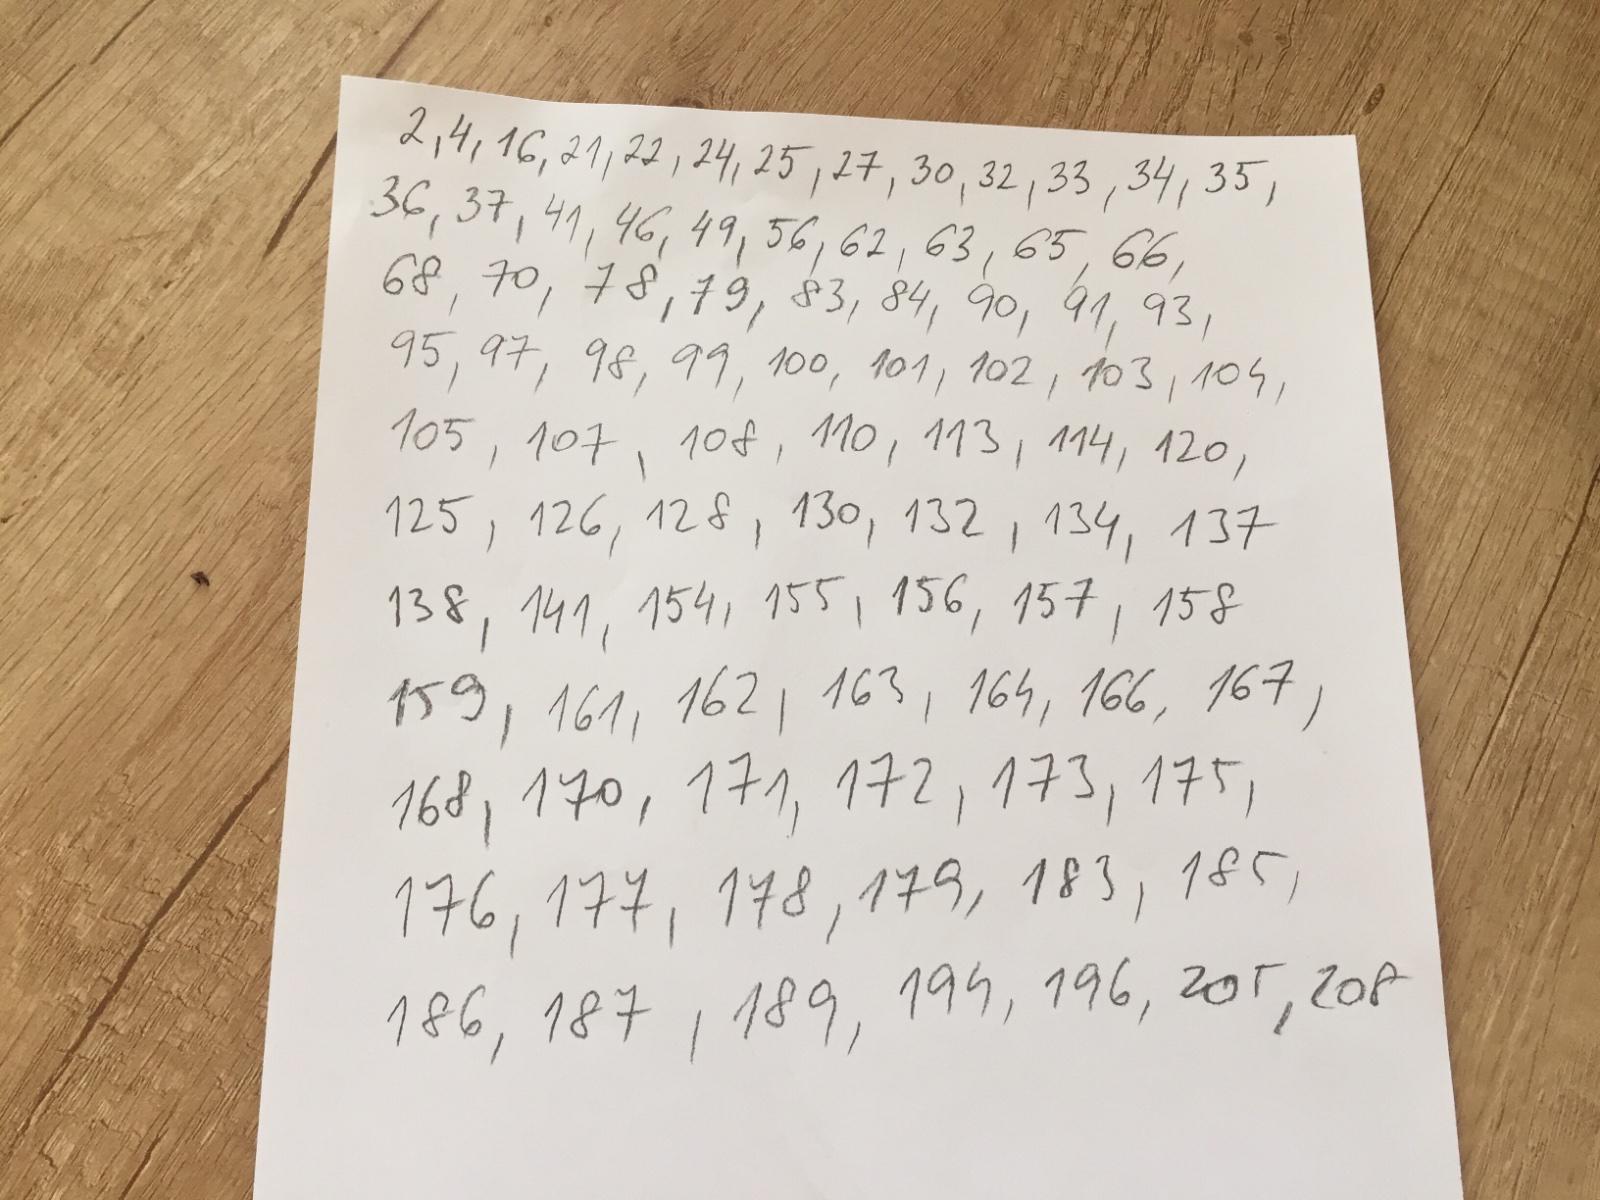 2, 4, 16, 21, 22, 24, 25, 27, 30, 32, 33, 34, 35,
36, 37, 41, 46, 49, 56, 62, 63, 65, 66,
68, 70, 78, 79, 83, 84, 90, 91, 93,
95, 97, 98, 99, 100, 101, 102, 103, 104,
105, 107, 108, 110, 113, 114, 120,
125, 126, 128, 130, 132, 134, 137
138, 141, 154, 155, 156, 157, 158
159, 161, 162, 163, 164, 166, 167,
168, 170, 171, 172, 173, 175,
176, 177, 178, 179, 183, 185,
186, 187, 189, 194, 196, 205, 208